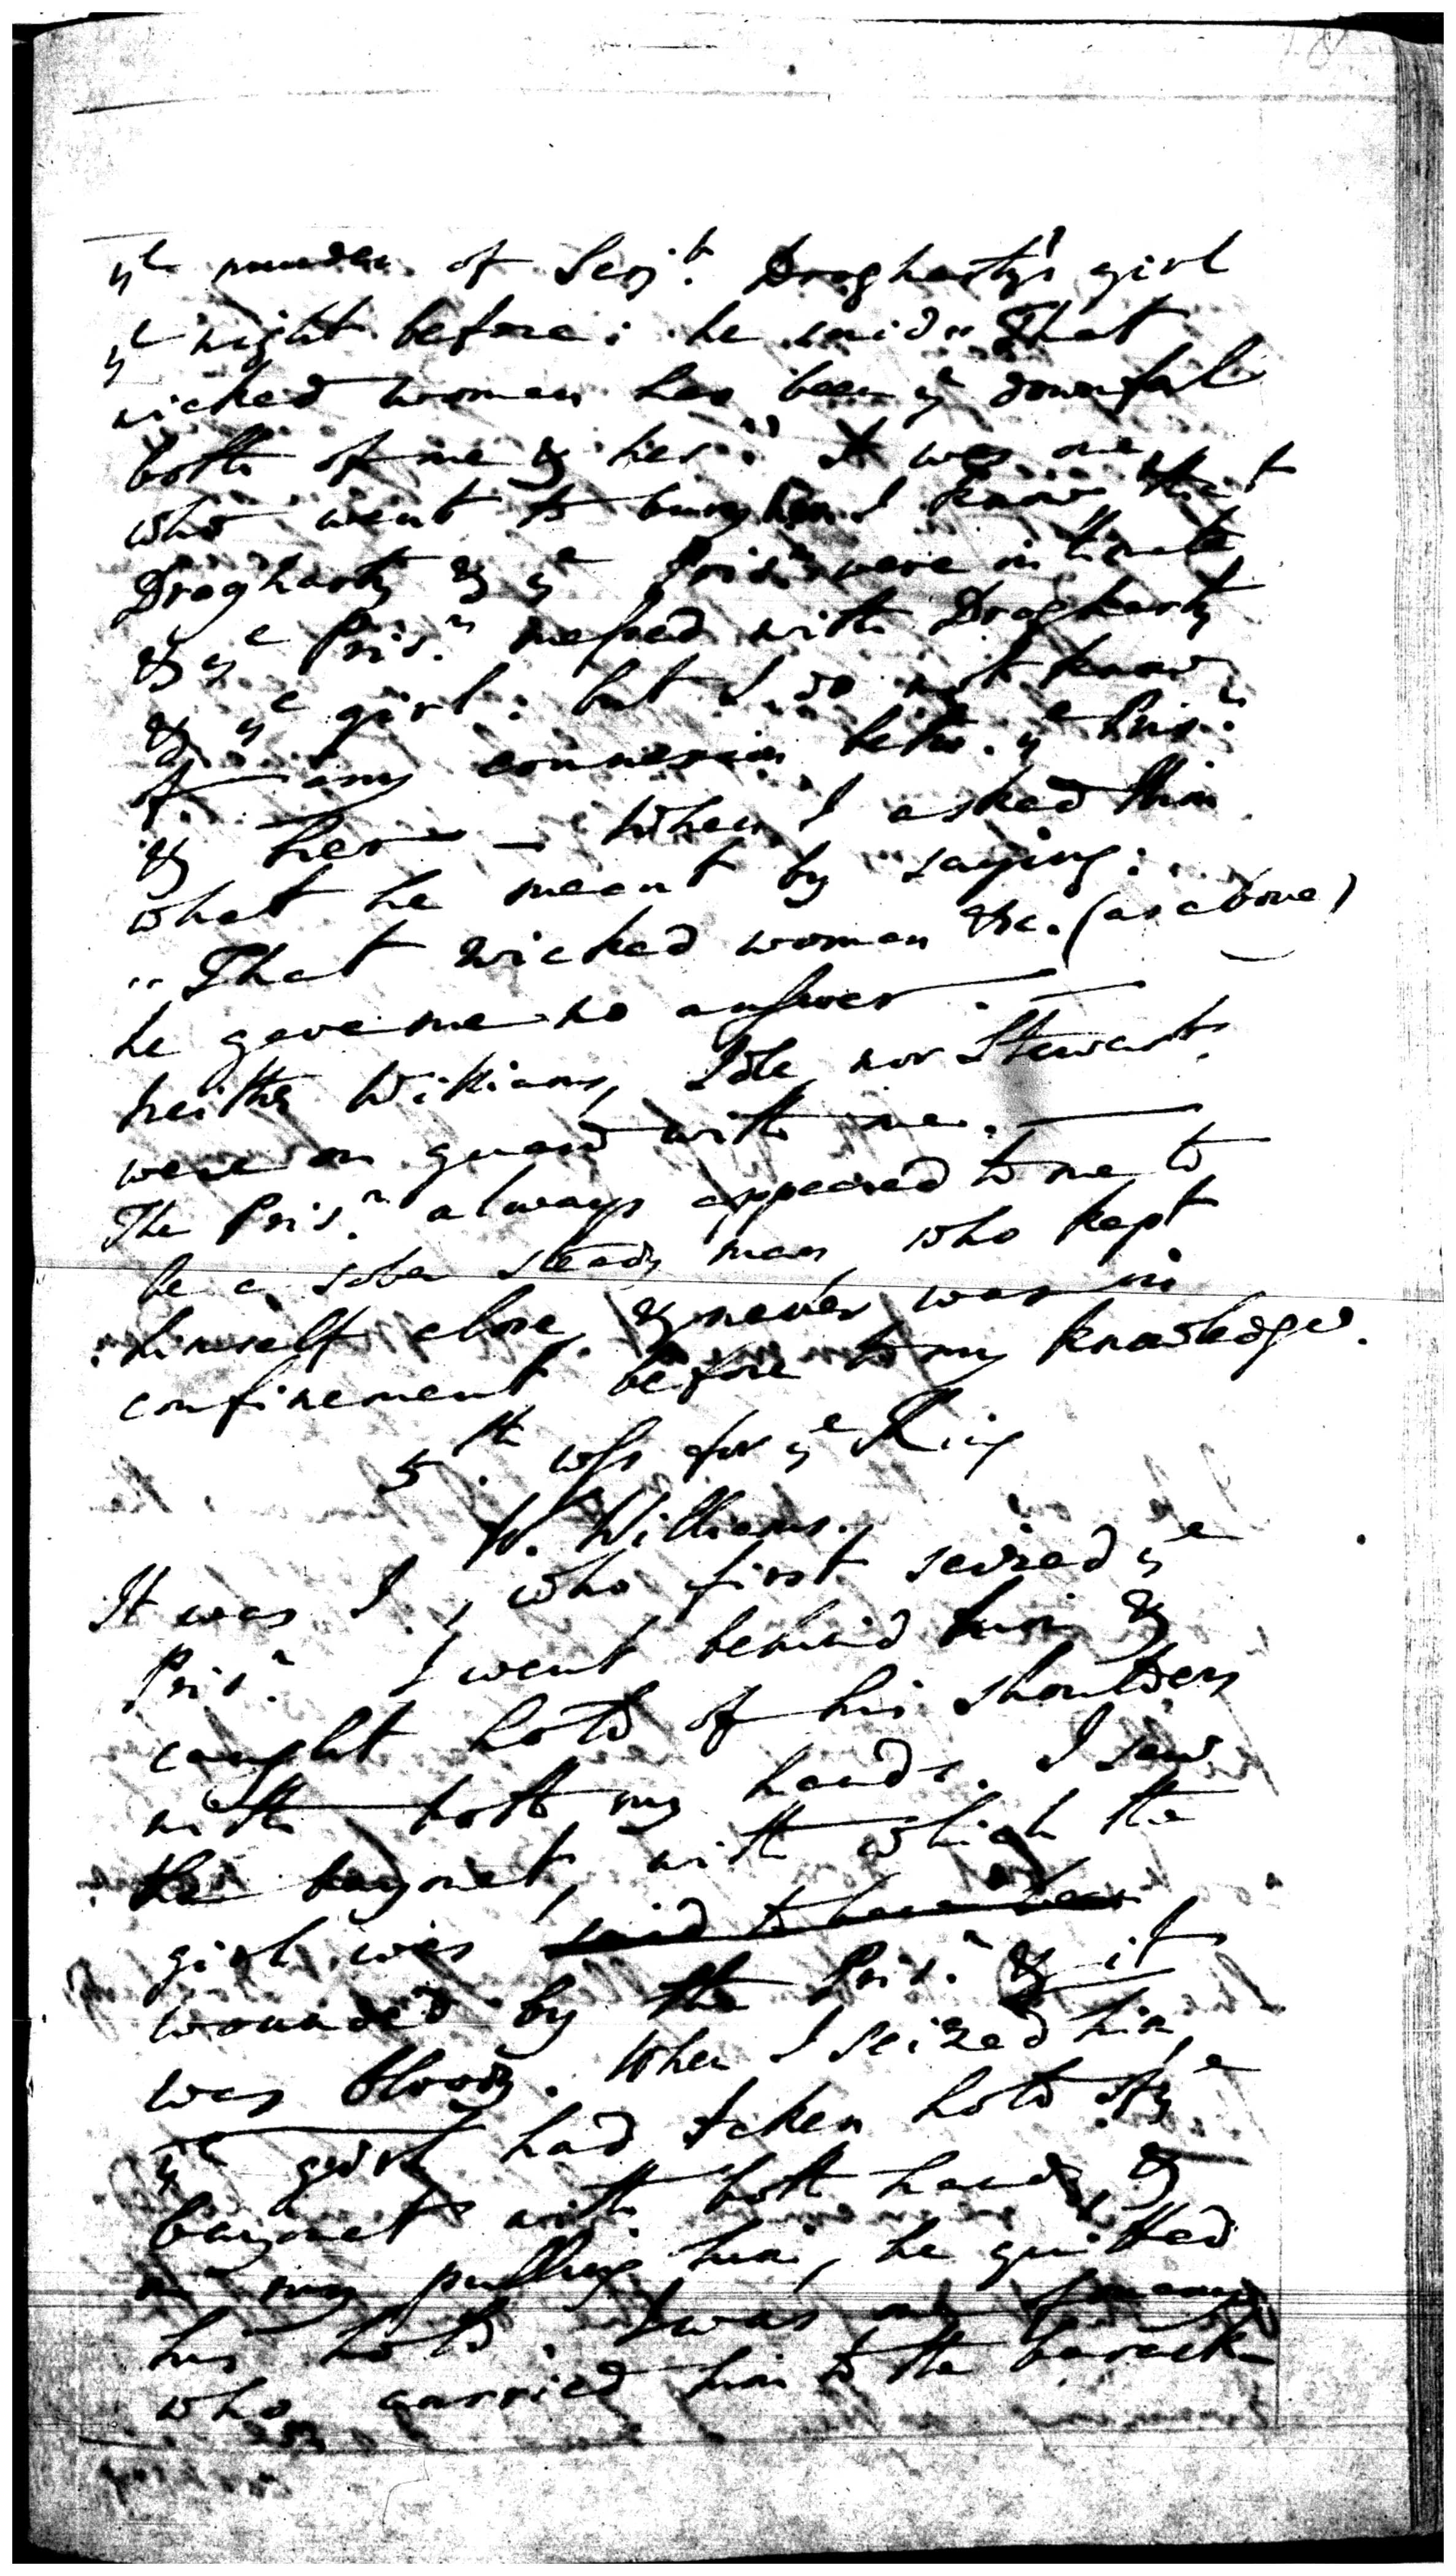 ye murder of Serjt. Drogharty's girl
ye night before: he said "That
wicked woman has been ye downfal
both of me & her." It was me
who went to bury her. I know that
Drogharty & ye Prisr. were intimate
& ye Prisr. messed with Drogharty
& ye girl: but I do not know
of any connexion betw. ye Prisr.
& her — When I asked him
what he meant by saying:
"That wicked woman &c. (as above)
he gave me no answer. —
neither Williams, Idle, nor Stewart,
were on guard with me. —
The Prisr. always appeared to me to
be a sober steady man, who kept
himself alone, & never was in
confinement before to my knowledge.
5th. wss for ye King
W. Williams.
It was I, who first seized ye
Prisr. I went behind him &
caught hold of his shoulders
with both my hands. I saw
the bayonet, with which the
girl was said to have been
wounded by the Prisr. & it
was bloody. When I seized him,
ye girl had taken hold of ye
bayonet with both hands, &
in my pulling him, he quitted
his hold. I was
who carried him to the barack